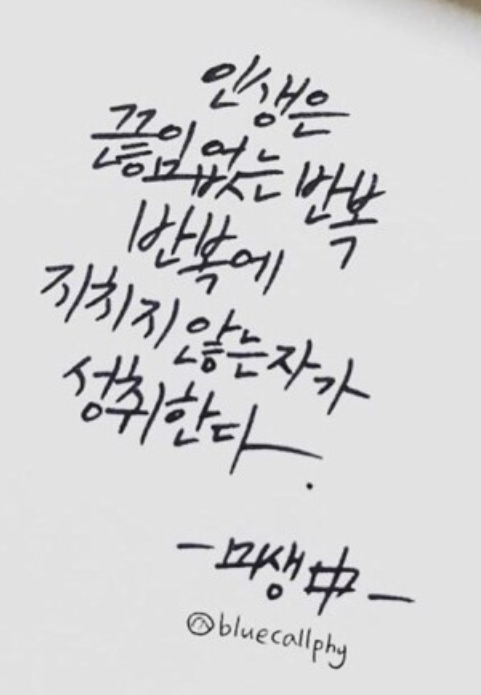 인생은
끊임없는 반복
반복에
지치지 않는자가
성취한다.
- 미생 中 -
@bluecallphy